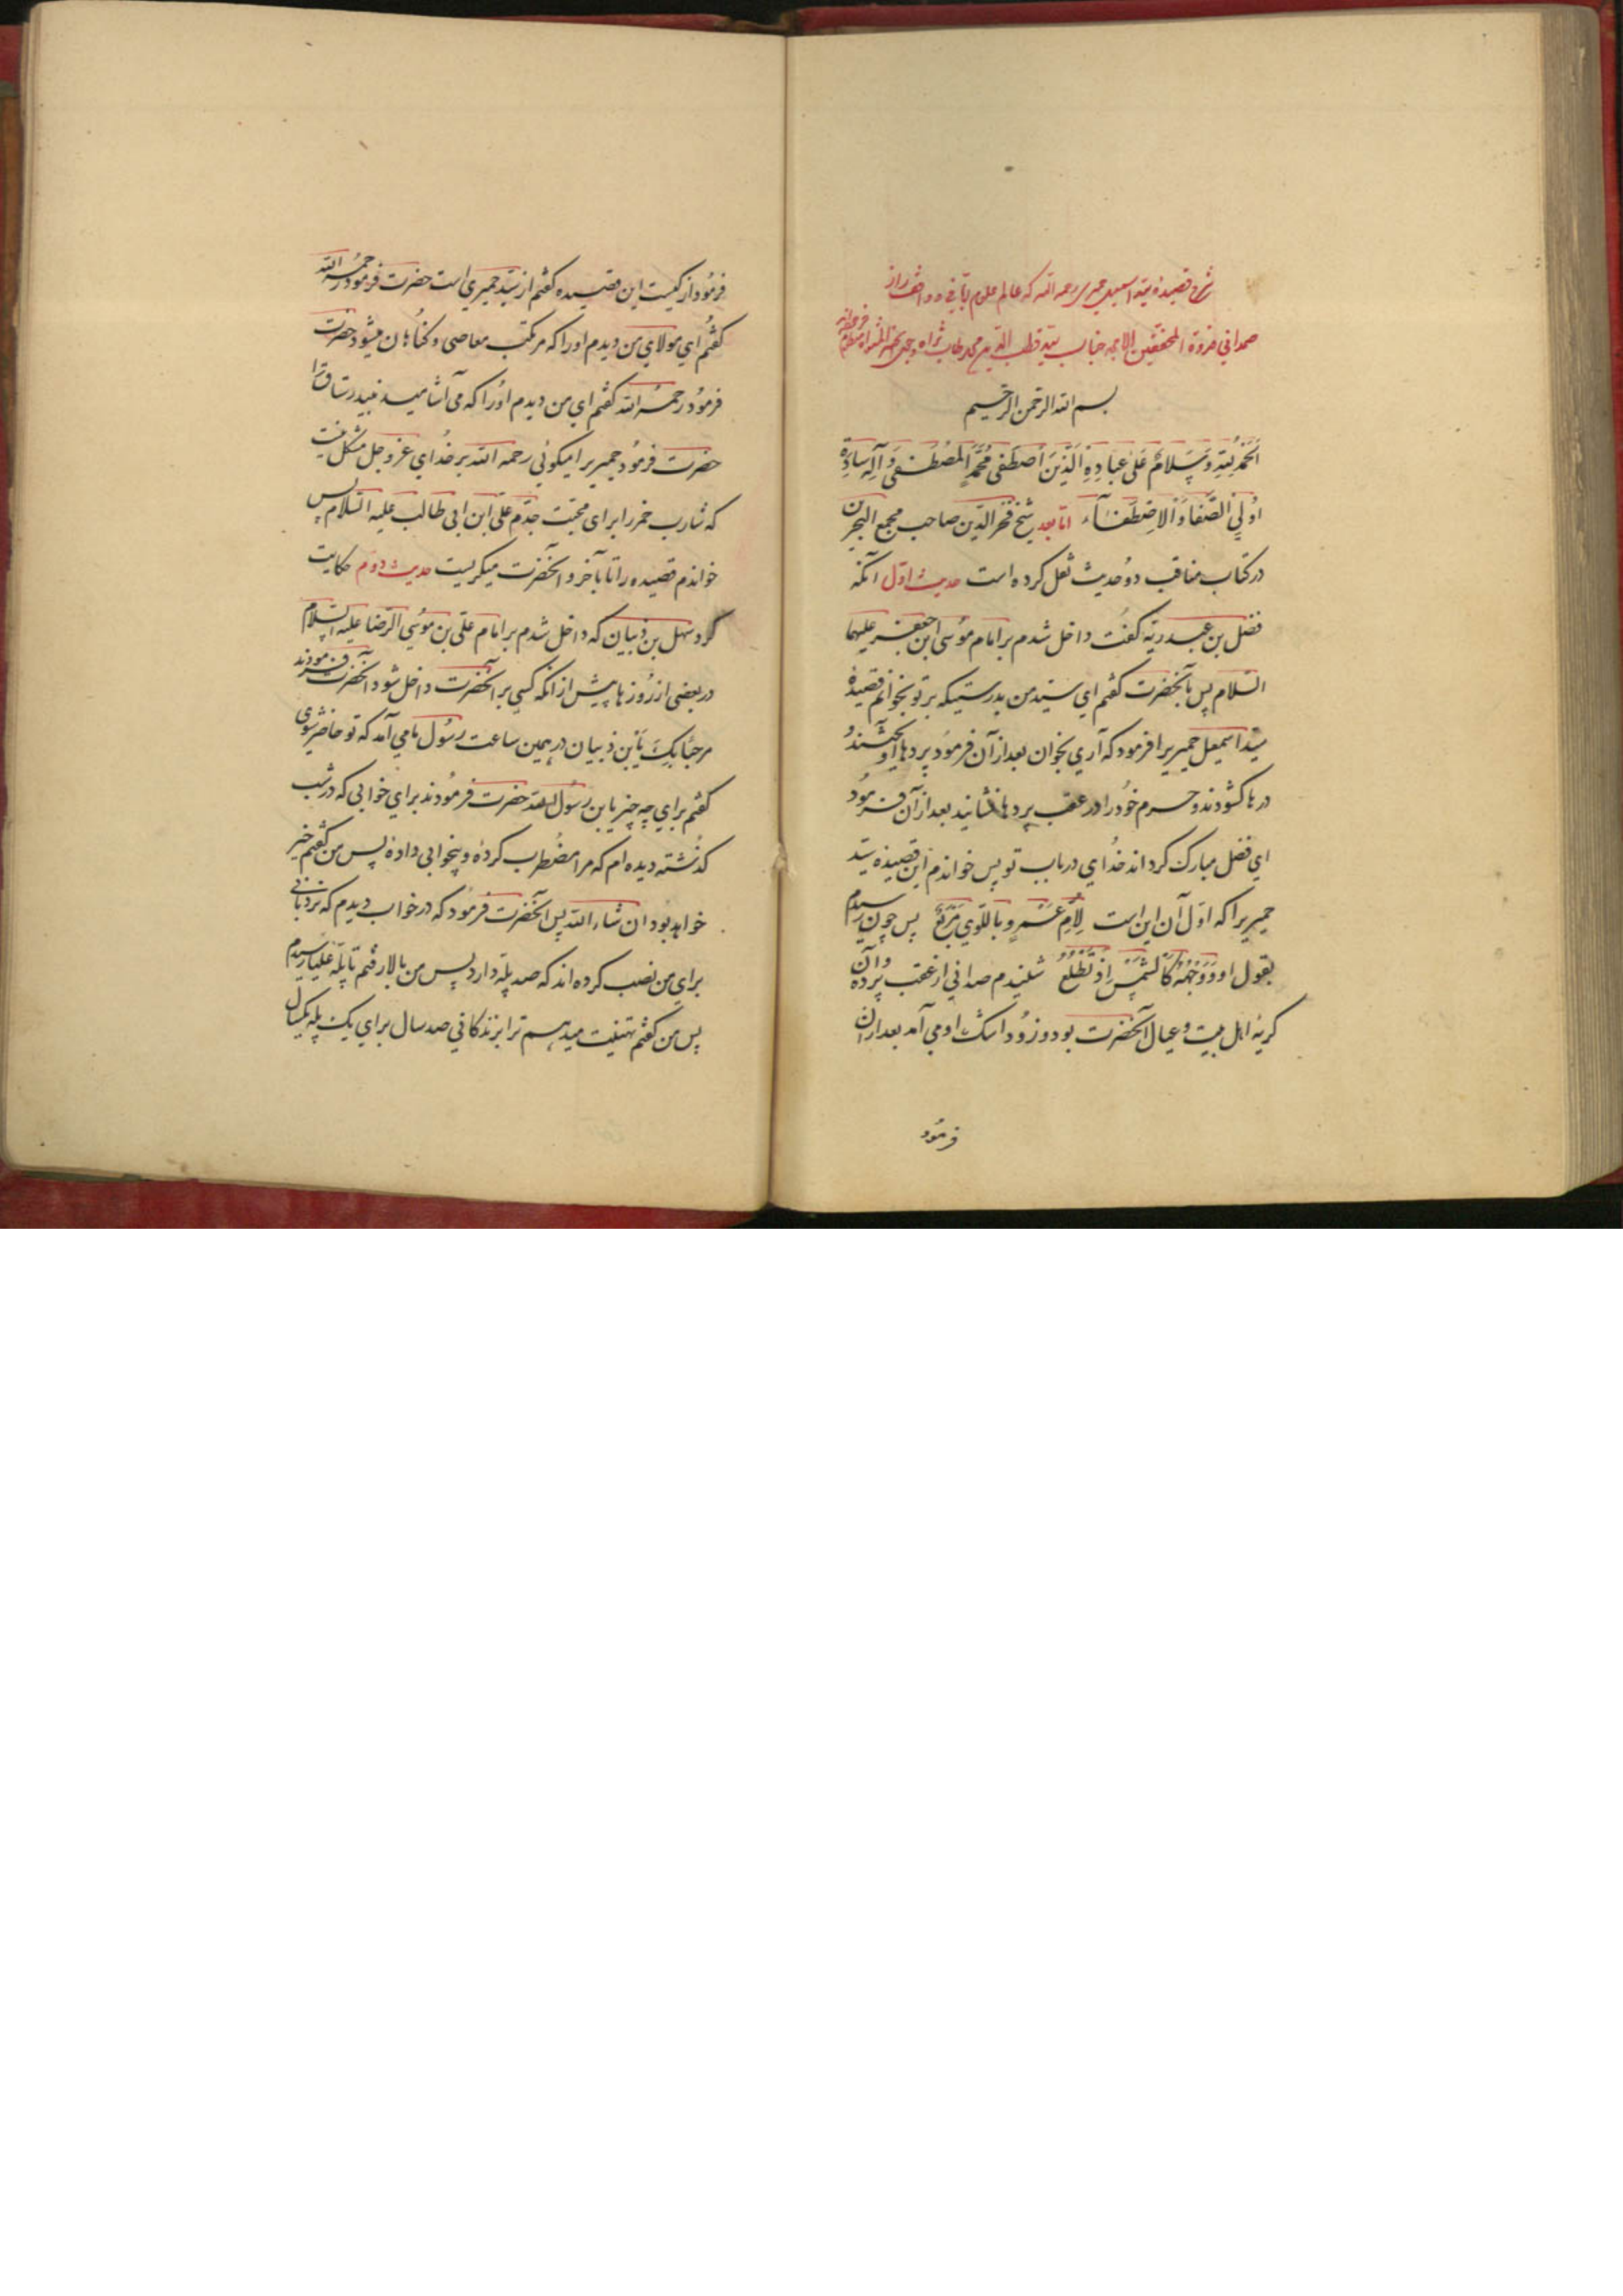 شرح قصیدهٔ سید اسمعیل حمیری رحمه الله که عالم علوم ربانی و واقف راز
صمدانی قدوة المحققین الامجد جناب سید قطب الدین محمد طاب ثراه
بسم الله الرحمن الرحیم
اَلحَمدُ لِلّهِ وَ سَلامٌ عَلیٰ عِبادِهِ الَّذینَ اصطَفی مُحَمَّدٍ المُصطَفی وَ آلِهِ سادَةِ
اُولِی الصَّفاءِ وَ الاِصطَفآء اما بعد شیخ فخر الدین صاحب مجمع البحرین
در کتاب مناقب دو حدیث نقل کرده است حدیث اول آنکه
فضل بن عبد ربه گفت داخل شدم بر امام موسی ابن جعفر علیهما
السلام پس بآنحضرت گفتم ای سید من بدرستیکه بر تو بخوانم قصیدهٔ
سید اسمعیل حمیریرا فرمود که آری بخوان بعد از آن فرمود پردها آویختند و
درها گشودند و حرم خود را در عقب پردها نشانیدند بعد از آن فرمود
ای فضل مبارک گرداند خدای در باب تو پس خواندم این قصیدهٔ سید
حمیریرا که اول آن این است لِاُمِّ عَمرٍو بِاللِّوی مَربَعُ پس چون رسیدم
بقول او وَ وَجهُهُ کَالشَّمسِ اِذ تَطلُعُ شنیدم صدائی از عقب پرده و آن
گریهٔ اهل بیت و عیال آنحضرت بود و زود اشک او می آمد بعد ازان
فرمود
فرمود از کیست این قصیده گفتم از سید حمیری است حضرت فرمود رحمه الله
گفتم ای مولای من دیدم او را که مرتکب معاصی و گناهان میشود حضرت
فرمود رحمه الله گفتم ای من دیدم او را که می آشامید نبید رستاق را
حضرت فرمود حمیریرا میگوئی رحمه الله بر خدای عز و جل مشکل نیست
که شارب خمر را برای محبت جدم علی ابن ابی طالب علیه السلام پس
خواندم قصیده را تا بآخر و آنحضرت میگریست حدیث دوم حکایت
کرد سهل بن ذبیان که داخل شدم بر امام علی بن موسی الرضا علیه السلام
در بعضی از روزها پیش از آنکه کسی بر آنحضرت داخل شود آنحضرت فرمودند
مرحبًا بِکَ یابن ذبیان در همین ساعت رسول ما می آمد که تو حاضر شوی
گفتم برای چه چیز یا بن رسول الله حضرت فرمودند برای خوابی که در شب
گذشته دیده ام که مرا مضطرب کرده و بیخوابی داده پس من گفتم خیر
خواهد بود ان شاء الله پس آنحضرت فرمود که در خواب دیدم که نردبانی
برای من نصب کرده اند که صد پله دارد پس من بالا رفتم تا پلهٔ علیا رسیدم
پس من گفتم تهنیت میدهم ترا بزندگانی صد سال برای یک پله یکسال